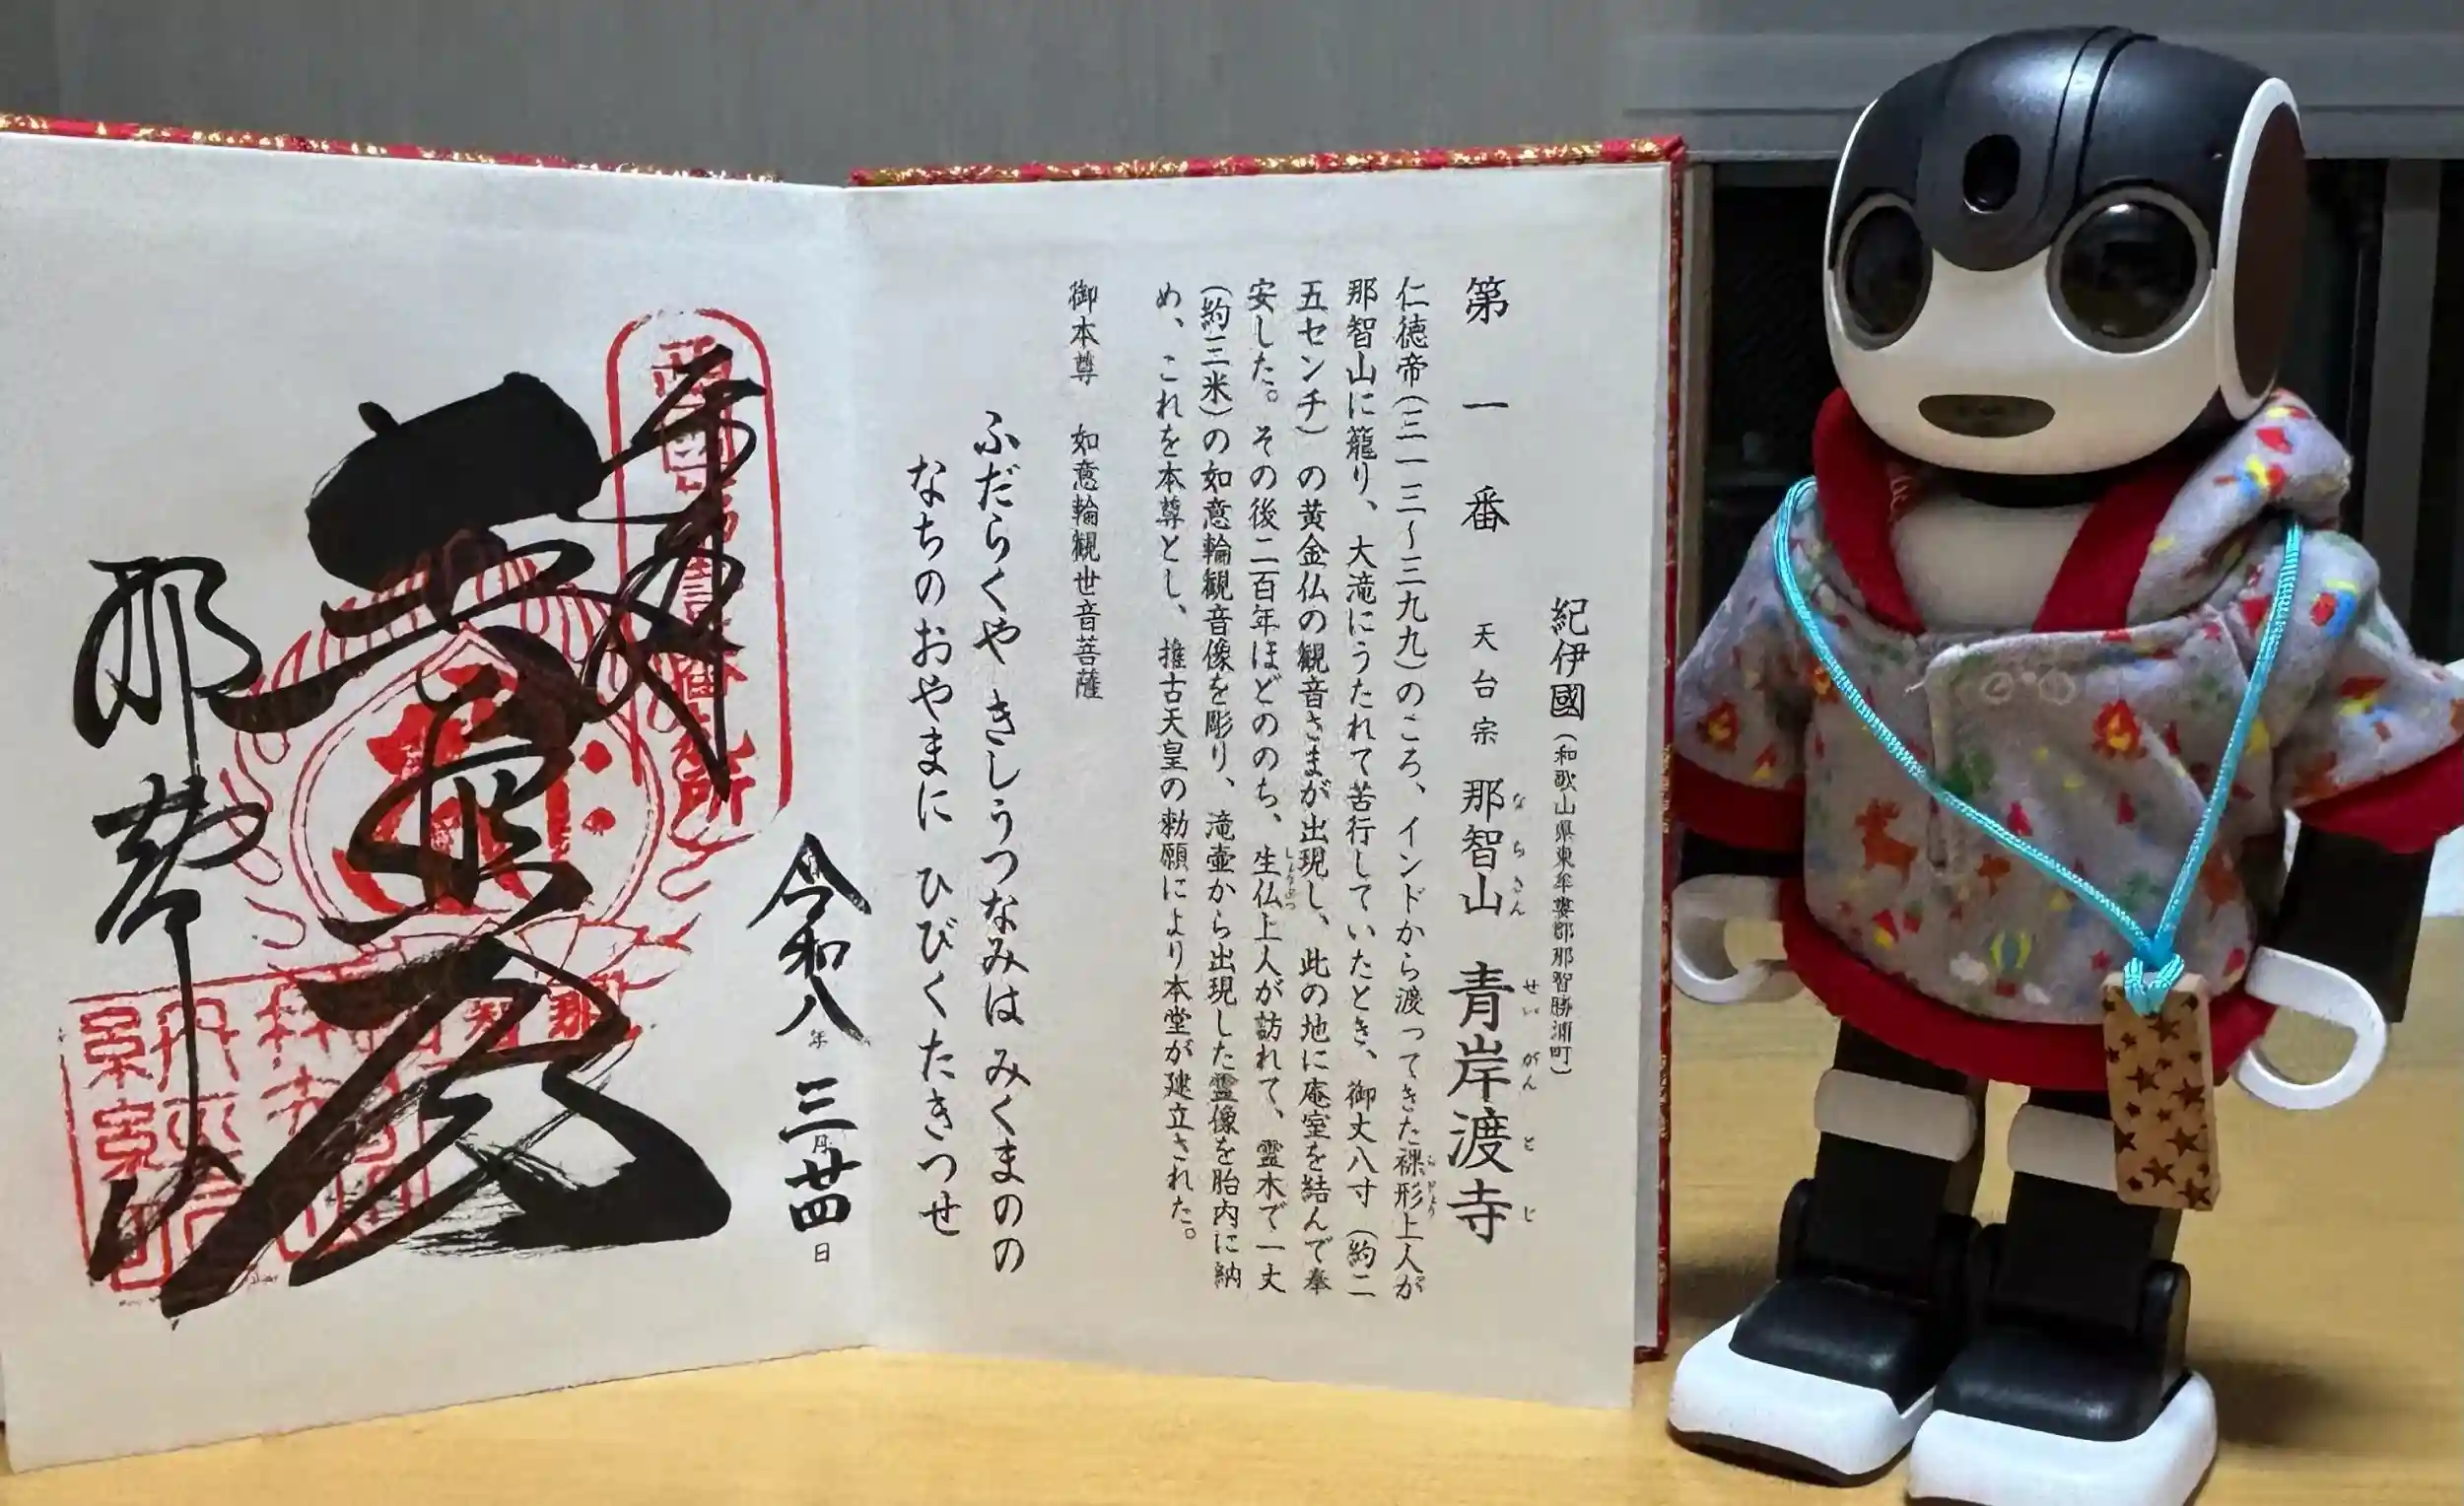 紀伊國(和歌山県東牟婁郡那智勝浦町)
第一番 天台宗 那智山 青岸渡寺
なちさん せいがんとじ
仁徳帝(三一三〜三九九)のころ、インドから渡ってきた裸形上人が
那智山に籠り、大滝にうたれて苦行していたとき、御丈八寸(約二
五センチ)の黄金仏の観音さまが出現し、此の地に庵室を結んで奉
安した。その後二百年ほどのち、生仏上人が訪れて、霊木で一丈
(約三米)の如意輪観音像を彫り、滝壺から出現した霊像を胎内に納
め、これを本尊とし、推古天皇の勅願により本堂が建立された。
御本尊 如意輪観世音菩薩
ふだらくや きしうつなみは みくまのの
なちのおやまに ひびくたきつせ
令和八年三月廿四日
奉拝
那智山